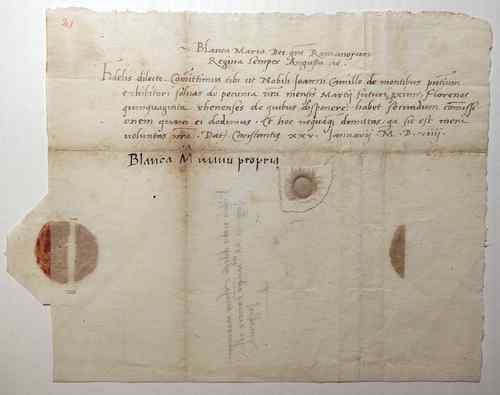 21
Blanca Maria Dei gra Romanorum
Regina semper Augusta &c.
Fidelis dilecte. Comittimus tibi ut Nobili Joanni Camillo de montibus
exhibitori solvas de pecunia mensis Martij futuri florenos
quinquaginta rhenenses de quibus disponere habet secundum comissi
onem quam ei dedimus. Et hoc dimittas, qa sic est mera
voluntas nra. Dat. Constantię xxv. Januarij M. D. viiii.
Blanca M manu propria